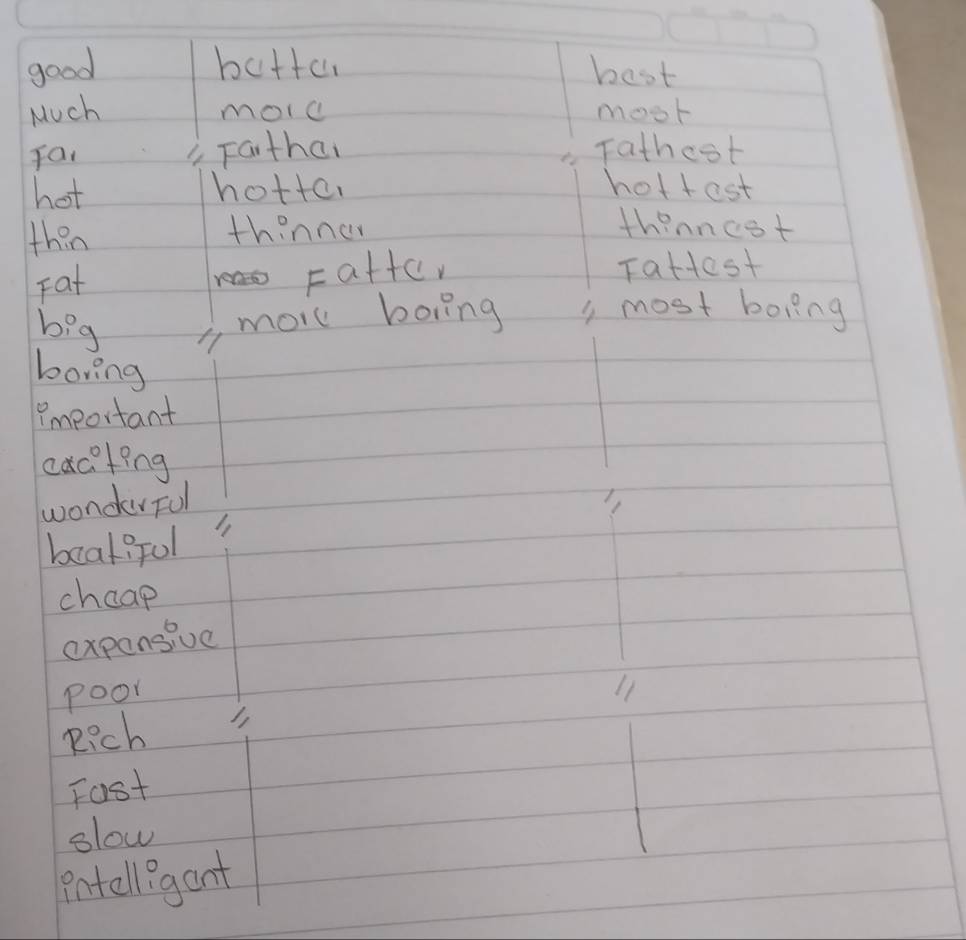 good better best
Much more most
Far " Farther " Fathest
hot hotter hottest
thin thinner thinnest
Fat Fatter Fattest
big " more boring " most boring
boring
important
exciting
wonderFul " "
beatiFul
cheap
expensive
poor "
Rich "
Fast
slow
intelligent